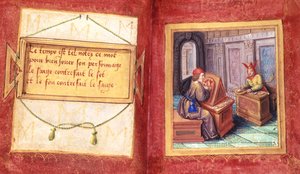 Le temps est tel notez ce mot
pour bien jouer son personnage
le saige contrefait le sot
et le sou contrefait le saige